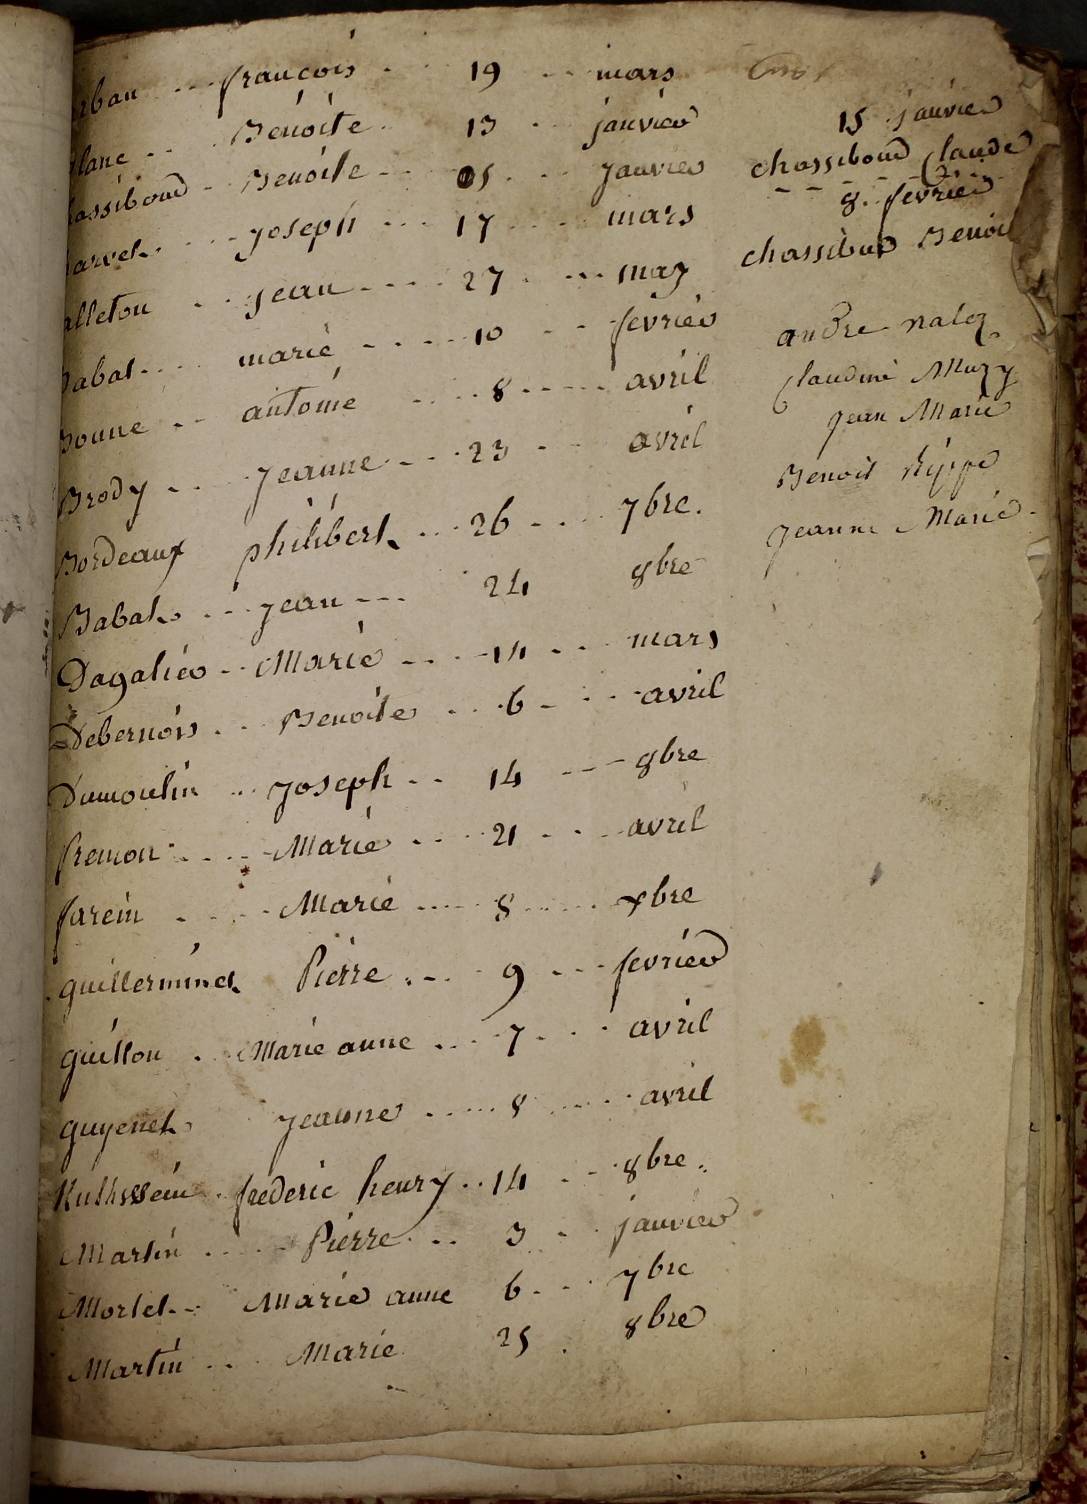 rban francois 19 mars
lanc Benoite 13 janvier 15 janvier
hassiboud Benoite 05 janvier chassiboud Claude
arvet joseph 17 mars 8 fevrier
alleton jean 27 may chassibud Benoit
Babat marie 10 fevrier
Bonne antoine 8 avril andre
Brody jeanne 23 avril Claudine Muzy
Bordeaux philibert 26 7bre. jean Marie
Babat jean 24 8bre Benoit
Dagalier Marie 14 mars jeanne Marie
Debernois Benoite 6 avril
Dumoulin joseph 14 8bre
fremon Marie 21 avril
farein Marie 8 bre
guillerminet Pierre 9 fevrier
guillon Marie anne 7 avril
guyenet jeanne 8 avril
frederic henry 14 8bre.
Martin Pierre 3 janvier
Mortet Marie anne 6 7bre
Martin Marie 25 8bre